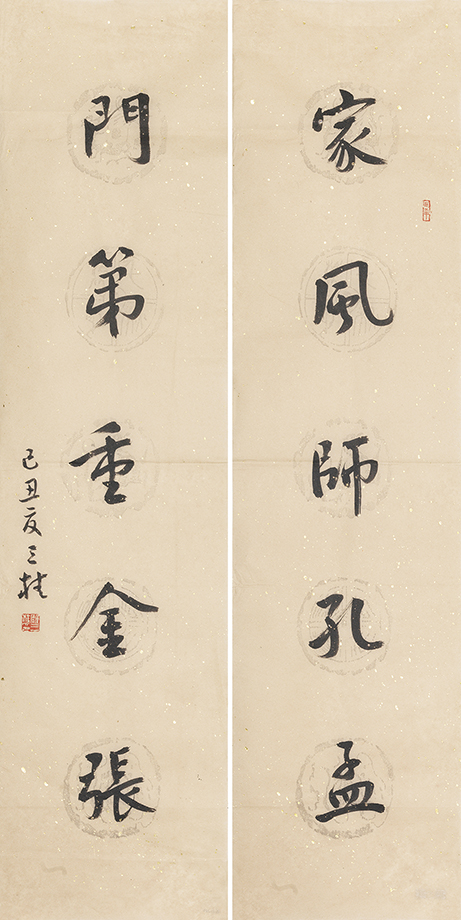 家風師孔孟
門第重金張
己丑夏三桂